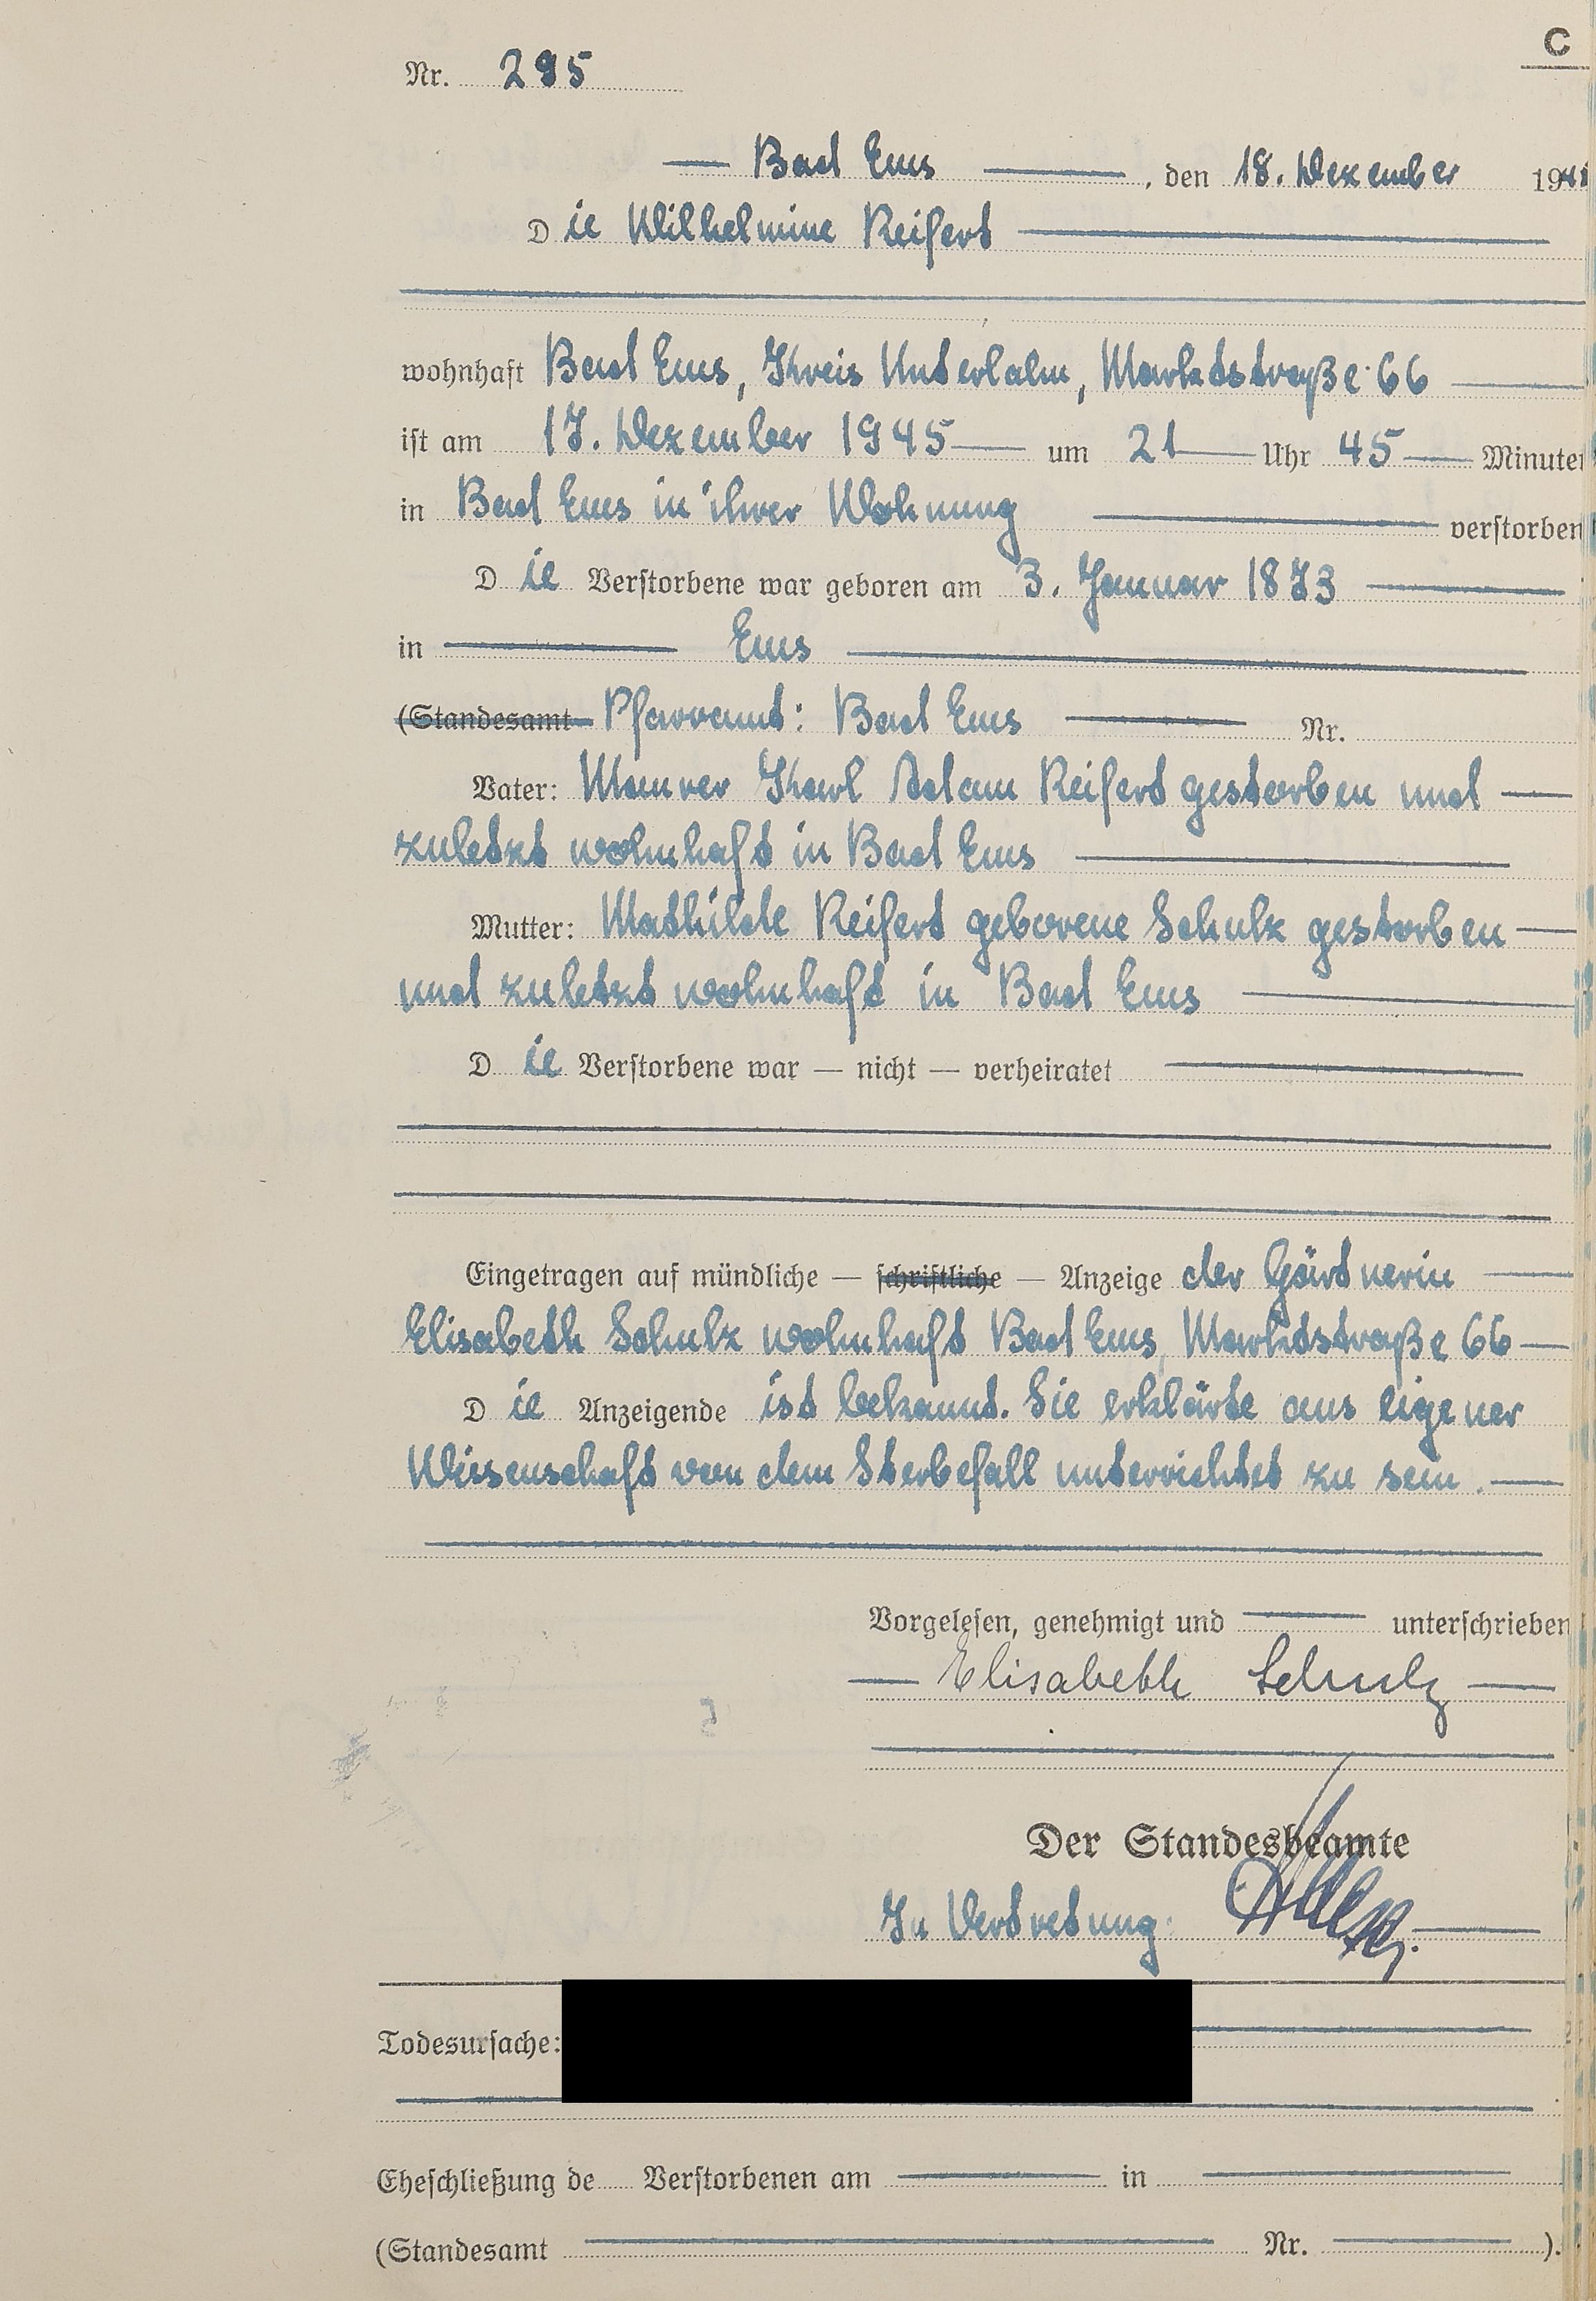 C
Nr. 295
Bad Ems, den 18. Dezember 19
Die Wilhelmine Reifert
wohnhaft Bad Ems, Kreis Unterlahn, Marktstraße 66
ist am 17. Dezember 1945 um 21 Uhr 45 Minuten
in Bad Ems in ihrer Wohnung verstorben
Die Verstorbene war geboren am 3. Januar 1873
in Ems
(Standesamt Pfarramt: Bad Ems Nr.
Vater: Maurer Karl Adam Reifert gestorben und
zuletzt wohnhaft in Bad Ems
Mutter: Mathilde Reifert geborene Schulz gestorben
und zuletzt wohnhaft in Bad Ems
Die Verstorbene war — nicht — verheiratet
Eingetragen auf mündliche — schriftliche — Anzeige der Gärtnerin
Elisabeth Schulz wohnhaft Bad Ems, Marktstraße 66
Die Anzeigende ist bekannt. Sie erklärte aus eigener
Wissenschaft von dem Sterbefall unterrichtet zu sein.
Vorgelesen, genehmigt und unterschrieben
Elisabeth Schulz
Der Standesbeamte
In Vertretung:
Todesursache:
Eheschließung de Verstorbenen am in
(Standesamt Nr. ).